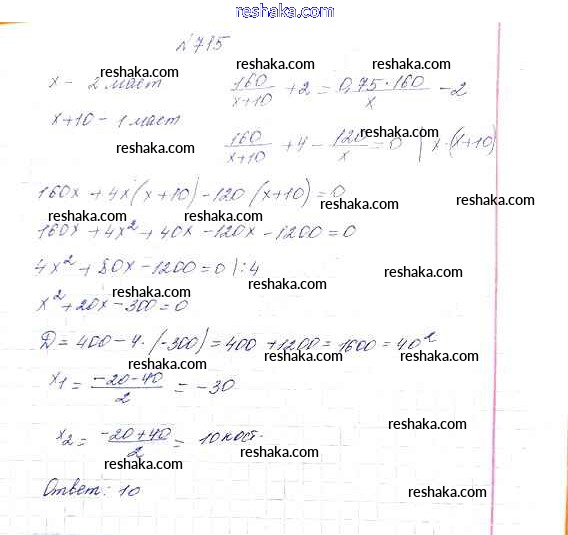 www.reshaka.com
№715
reshaka.com
reshaka.com
reshaka.com
x – 2 маст 160/(x+10) + 2 = 0,75·160/x – 2
x+10 – 1 маст
reshaka.com
reshaka.com
160/(x+10) + 4 – 120/x = 0 | x·(x+10)
160x + 4x(x+10) – 120(x+10) = 0
reshaka.com
reshaka.com
reshaka.com
160x + 4x² + 40x – 120x – 1200 = 0
4x² + 80x – 1200 = 0 |:4
reshaka.com
reshaka.com
x² + 20x – 300 = 0
D = 400 – 4·(–300) = 400 + 1200 = 1600 = 40²
reshaka.com
reshaka.com
x₁ = (–20–40)/2 = –30
reshaka.com
reshaka.com
x₂ = (–20+40)/2 = 10 кост.
reshaka.com
reshaka.com
Ответ: 10
reshaka.com